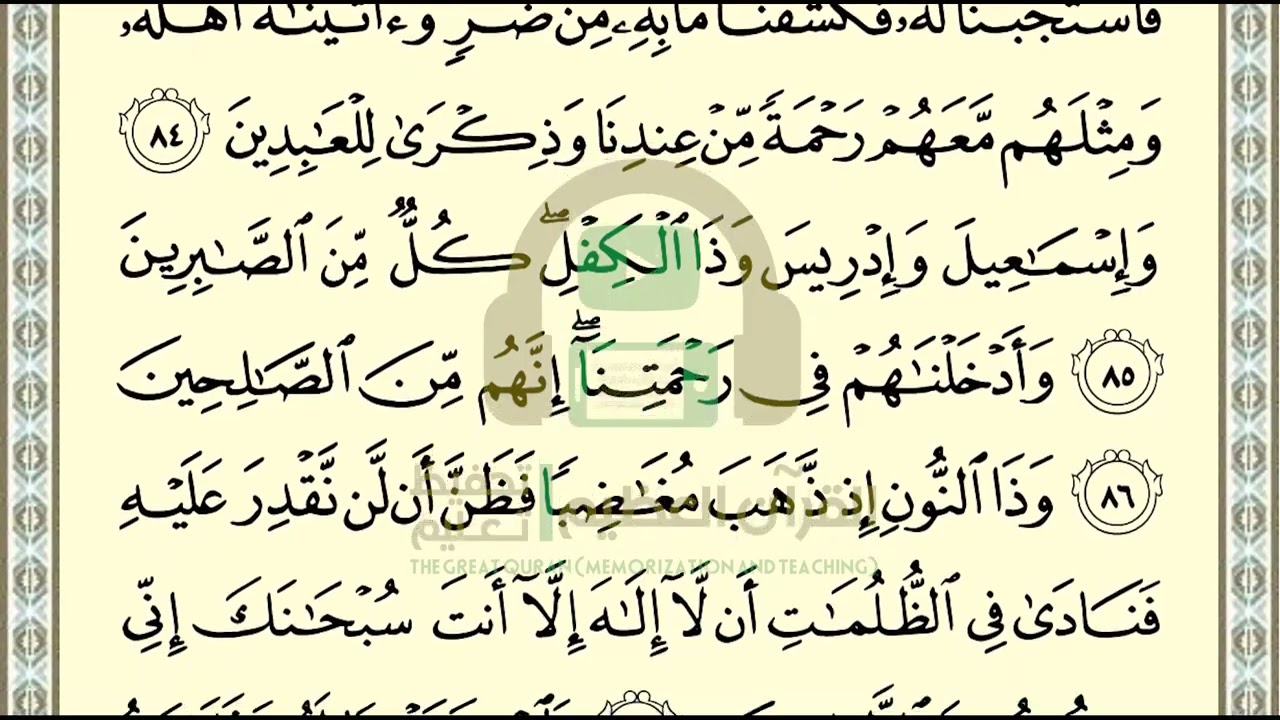 فَٱسْتَجَبْنَا لَهُۥ فَكَشَفْنَا مَا بِهِۦ مِن ضُرٍّ وَءَاتَيْنَٰهُ أَهْلَهُۥ
وَمِثْلَهُم مَّعَهُمْ رَحْمَةً مِّنْ عِندِنَا وَذِكْرَىٰ لِلْعَٰبِدِينَ ٨٤
وَإِسْمَٰعِيلَ وَإِدْرِيسَ وَذَا ٱلْكِفْلِۖ كُلٌّ مِّنَ ٱلصَّٰبِرِينَ
٨٥ وَأَدْخَلْنَٰهُمْ فِى رَحْمَتِنَآۖ إِنَّهُم مِّنَ ٱلصَّٰلِحِينَ
٨٦ وَذَا ٱلنُّونِ إِذ ذَّهَبَ مُغَٰضِبًا فَظَنَّ أَن لَّن نَّقْدِرَ عَلَيْهِ
القرآن العظيم | تحفيظ تعليم
THE GREAT QURAN (MEMORIZATION AND TEACHING)
فَنَادَىٰ فِى ٱلظُّلُمَٰتِ أَن لَّآ إِلَٰهَ إِلَّآ أَنتَ سُبْحَٰنَكَ إِنِّى